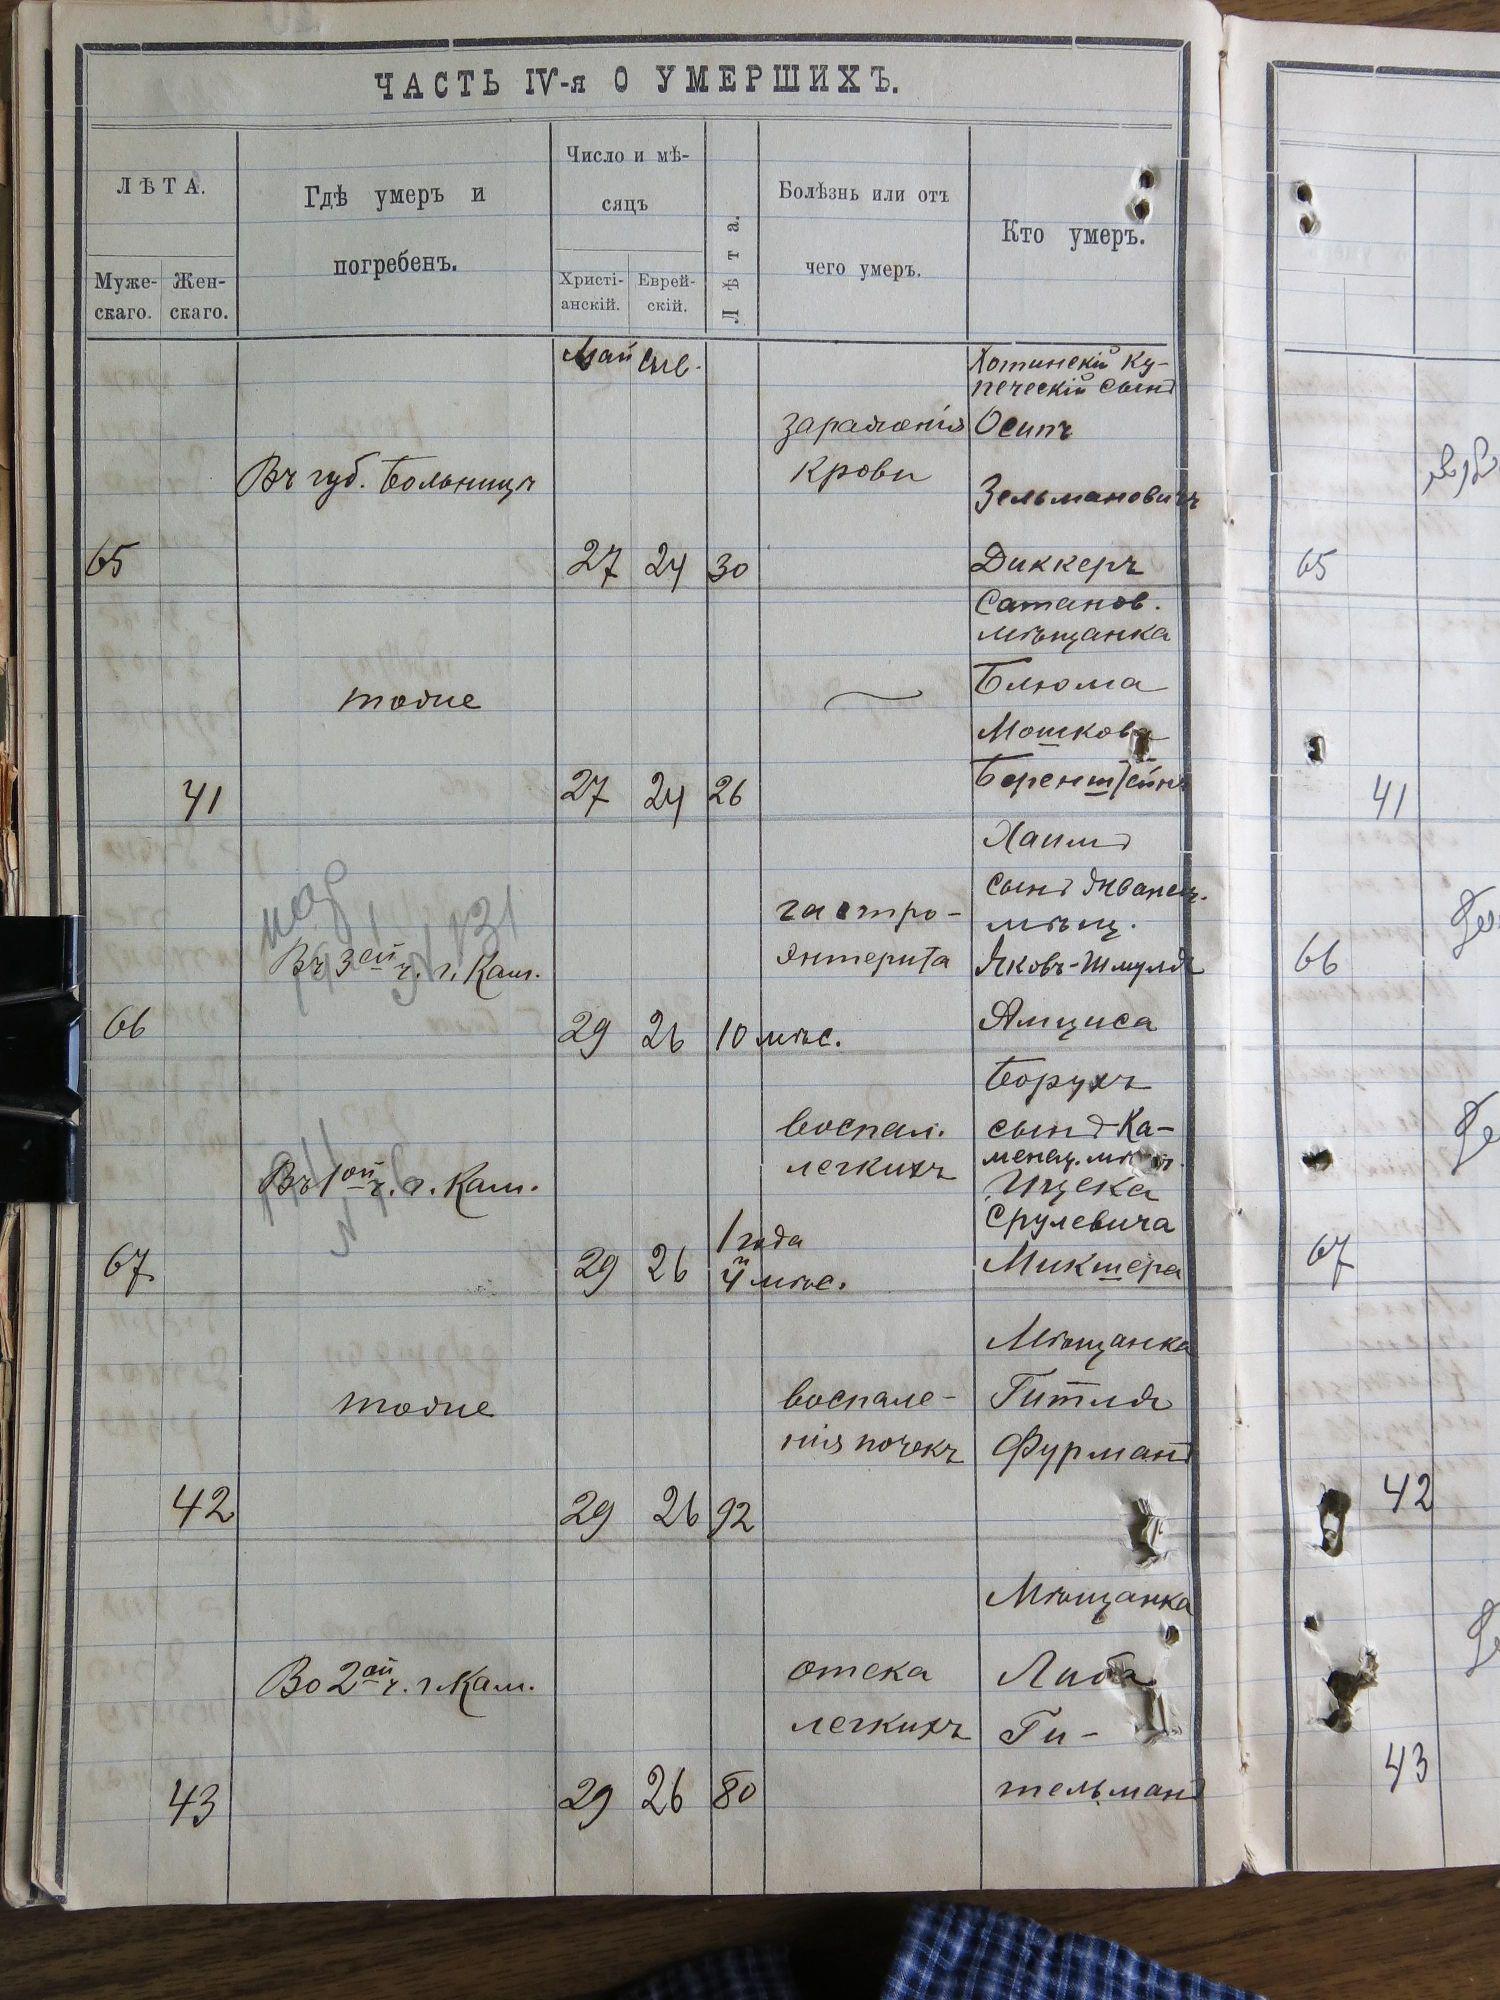 ЧАСТЬ IV-я О УМЕРШИХЪ.
ЛѢТА.
Муже-
скаго.
Жен-
скаго.
Гдѣ умеръ и
погребенъ.
Число и мѣ-
сяцъ
Христі-
анскій.
Еврей-
скій.
Лѣта.
Болѣзнь или отъ
чего умеръ.
Кто умеръ.
Май Сив.
Хотинскій Ку-
печескій сынъ
зараженія Осипъ
Въ губ. больницѣ крови
Зельмановичъ
65 27 24 30 Диккеръ
65
Сатанов.
мѣщанка
тоже Блюма
Мошкова
41 27 24 26 Беренштейнъ
41
Хаимъ
сынъ Жванец.
гастро- мѣщ.
Въ 3ой ч. г. Кам. энтерита Яковъ-Шмуля
66
66 29 26 10 мѣс. Амциса
Борухъ
воспал. сынъ Ка-
легкихъ менец. мѣщ.
Въ 1ой ч. г. Кам. Ицека
Срулевича
67 29 26 1 года и 4 мѣс. Микшера
67
Мѣщанка
тоже воспале- Гитля
нія почекъ Фурманъ
42 29 26 92
42
Мѣщанка
Во 2ой ч. г. Кам. отека Либа
легкихъ Ги-
43 29 26 80 тельманъ
43